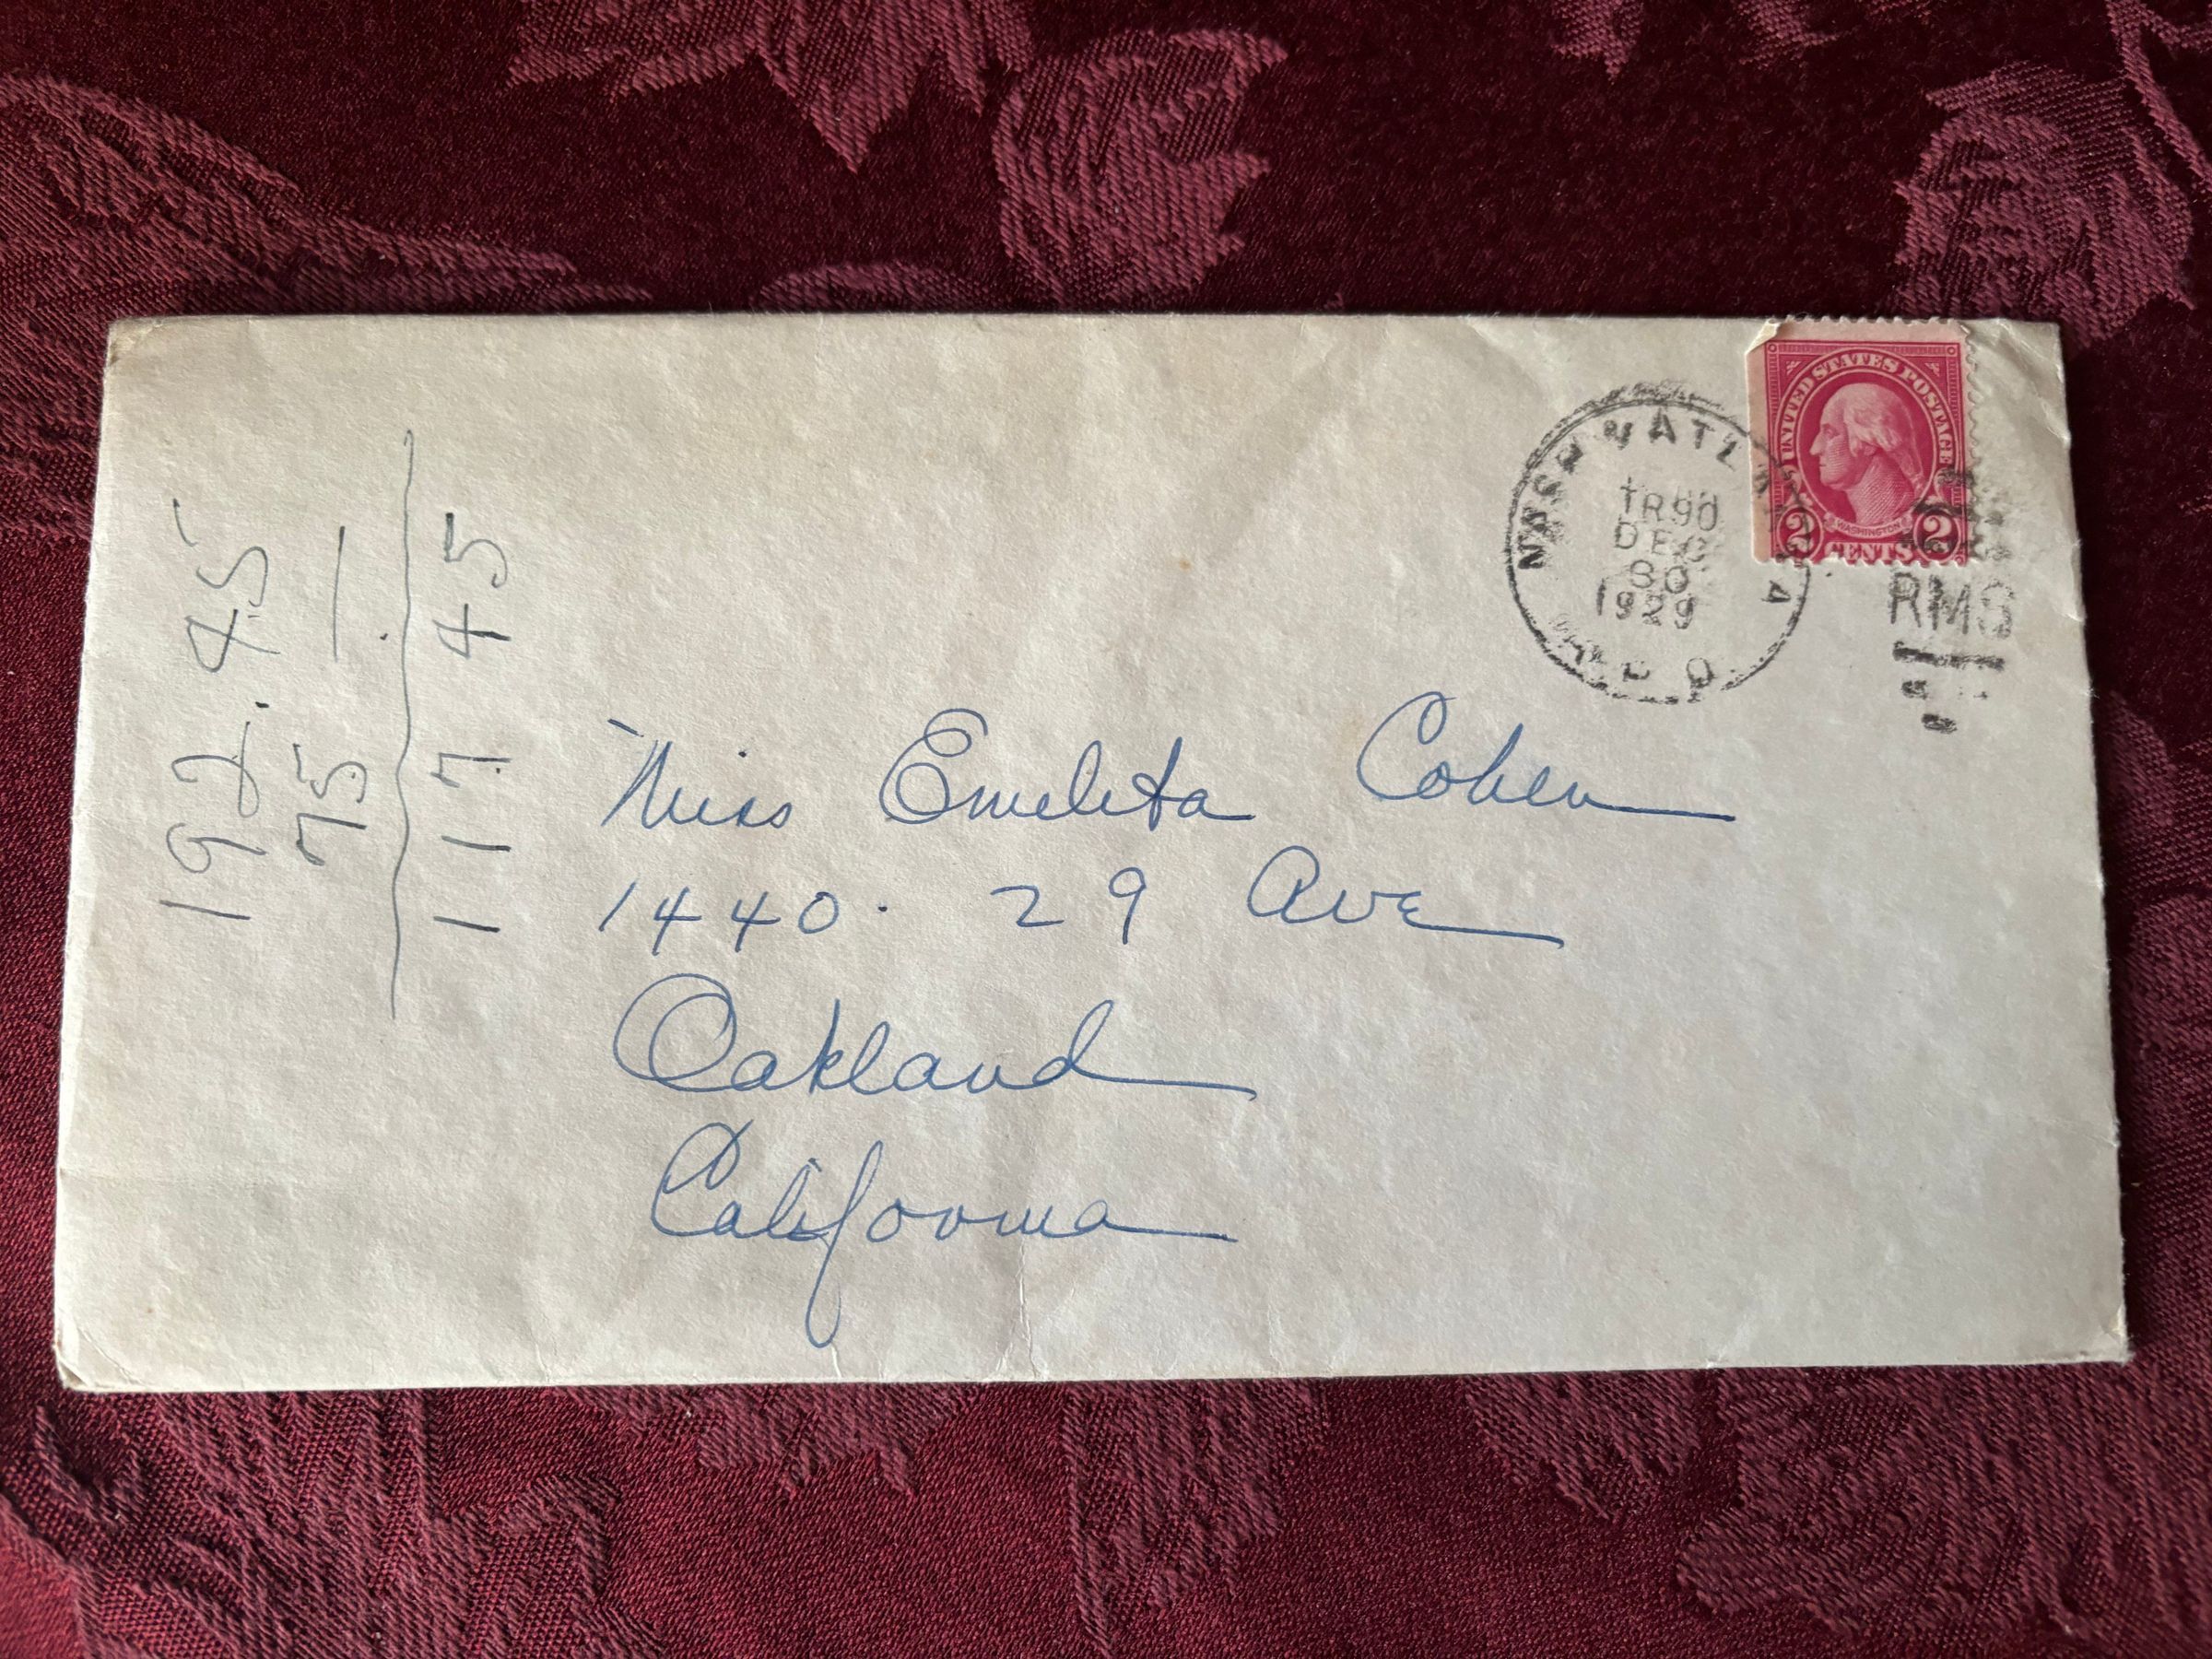 UNITED STATES POSTAGE
WASHINGTON
2 CENTS 2
NASH
ATL
TR 90
DEC
30
1929
R P O
RMS
Miss Emelita Cohen
1440. 29 Ave
Oakland
California
192.45
75 —
117 45